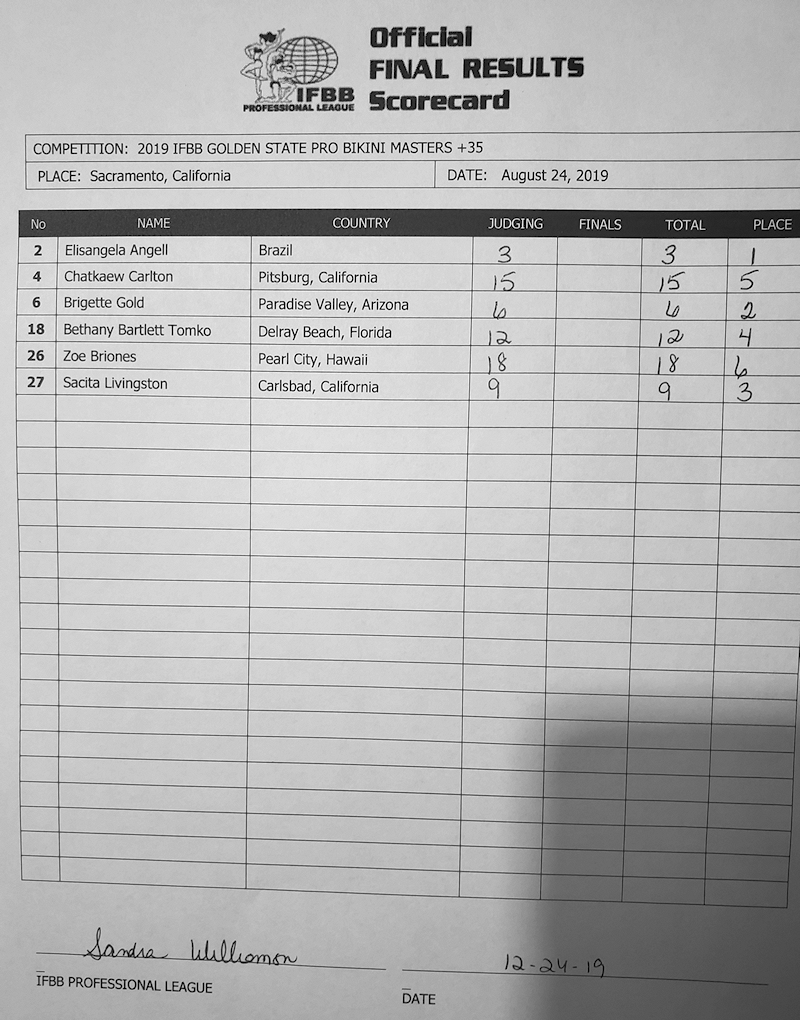 Official
FINAL RESULTS
Scorecard
IFBB
PROFESSIONAL LEAGUE
COMPETITION: 2019 IFBB GOLDEN STATE PRO BIKINI MASTERS +35
PLACE: Sacramento, California DATE: August 24, 2019
No NAME COUNTRY JUDGING FINALS TOTAL PLACE
2 Elisangela Angell Brazil 3 3 1
4 Chatkaew Carlton Pitsburg, California 15 15 5
6 Brigette Gold Paradise Valley, Arizona 6 6 2
18 Bethany Bartlett Tomko Delray Beach, Florida 12 12 4
26 Zoe Briones Pearl City, Hawaii 18 18 6
27 Sacita Livingston Carlsbad, California 9 9 3
Sandra 12-24-19
IFBB PROFESSIONAL LEAGUE DATE